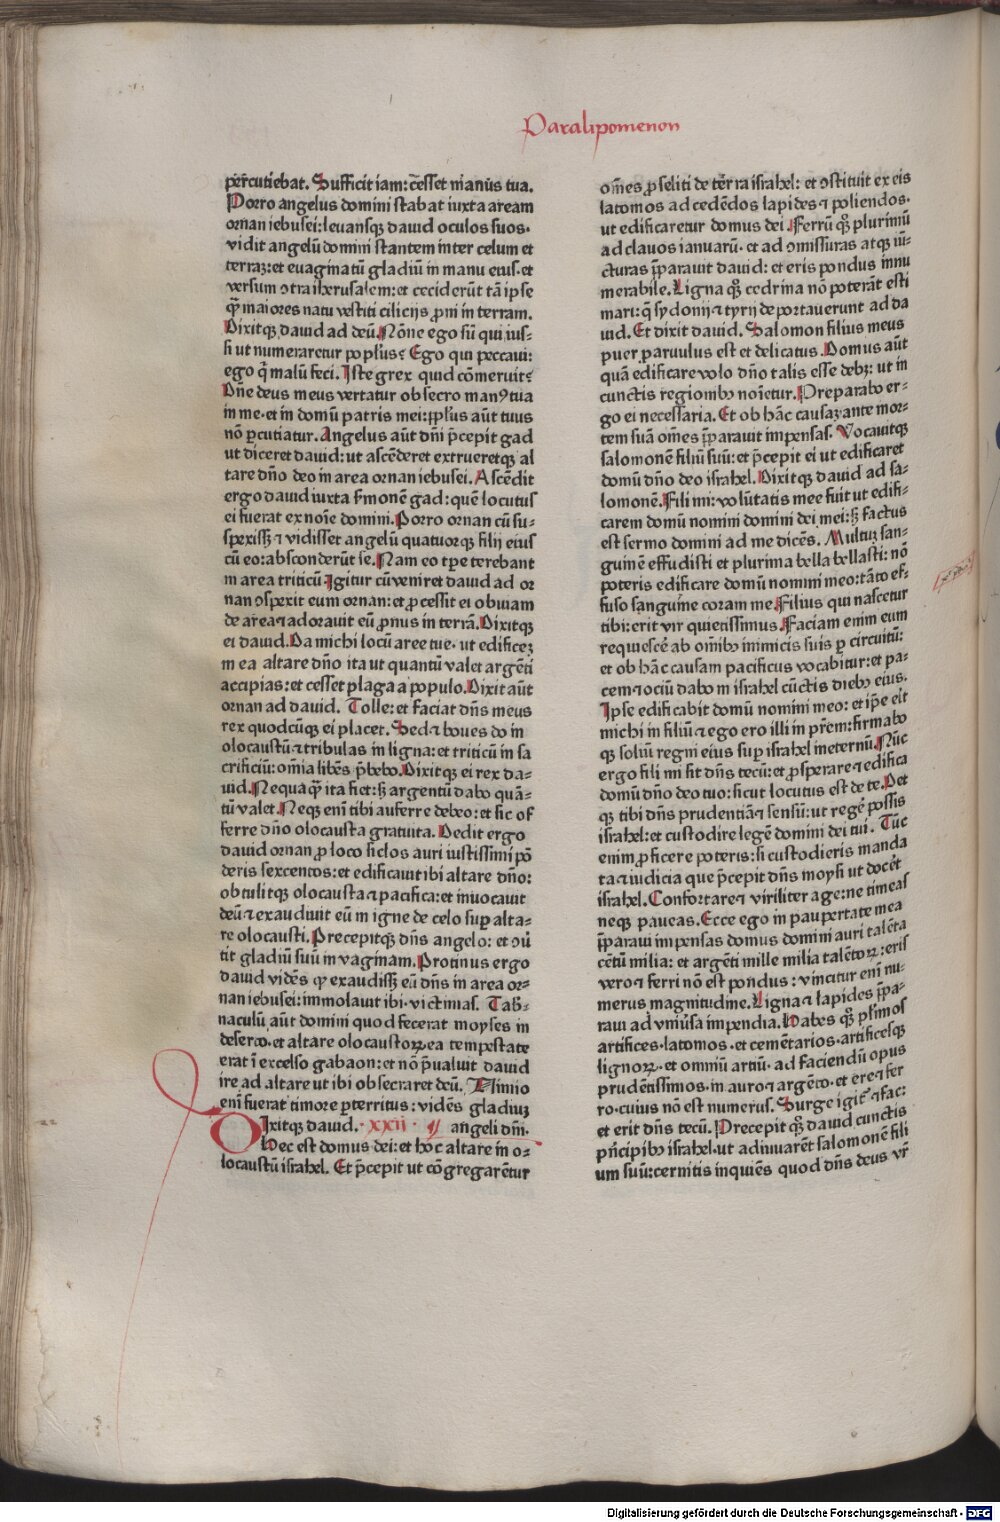 Paralipomenon
percutiebat. Sufficit iam: cesset manus tua.
Porro angelus domini stabat iuxta aream
ornan iebusei: leuansqȝ dauid oculos suos·
vidit angelū domini stantem inter celum et
terraȝ: et euaginatū gladiū in manu eius· et
versum ꝯtra iherusalem: et ceciderūt tā ipse
qꝫ maiores natu vestiti cilicijs ꝓni in terram.
Dixitqȝ dauid ad deū. Nōne ego sū qui ius⸗
si ut numeraretur popl'us? Ego qui peccaui:
ego q̄ malū feci. Iste grex quid cōmeruit?
Dn̄e deus meus vertatur obsecro manꝰ tua
in me· et in domū patris mei: ppl'us aūt tuus
nō ꝑcutiatur. Angelus aūt dn̄i p̄cepit gad
ut diceret dauid: ut ascēderet extrueretqȝ al
tare dn̄o deo in area ornan iebusei. Ascēdit
ergo dauid iuxta s̄monē gad: quē locutus
ei fuerat ex noīe domini. Porro ornan cū su⸗
spexissȝ ⁊ vidisset angelū quatuorqȝ filij eius
cū eo: absconderūt se. Nam eo tꝑe terebant
in area triticū. Igitur cū veniret dauid ad or
nan ꝯspexit eum ornan: et ꝓcessit ei obuiam
de area ⁊ adorauit eū ꝓnus in terrā. Dixitqȝ
ei dauid. Da michi locū aree tue· ut edificeȝ
in ea altare dn̄o ita ut quantū valet argēti
accipias: et cesset plaga a populo. Dixit aūt
ornan ad dauid. Tolle: et faciat dn̄s meus
rex quodcūqȝ ei placet. Sed ⁊ boues do in
olocaustū ⁊ tribulas in ligna: et triticū in sa
crificiū: om̄ia libēs p̄bebo. Dixitqȝ ei rex da⸗
uid. Nequaqꝫ ita fiet: sȝ argentū dabo quā⸗
tū valet. Neqȝ eni tibi auferre debeo: et sic of
ferre dn̄o olocausta gratuita. Dedit ergo
dauid ornan ꝓ loco siclos auri iustissimi pō
deris sexcentos: et edificauit ibi altare dn̄o:
obtulitqȝ olocausta ⁊ pacifica: et inuocauit
deū ⁊ exaudiuit eū in igne de celo suꝑ alta⸗
re olocausti. Precepitqȝ dn̄s angelo: et ꝯū
tit gladiū suū in vaginam. Protinus ergo
dauid vidēs ꝙ exaudissȝ eū dn̄s in area or⸗
nan iebusei: immolauit ibi· victimas. Tab̄⸗
naculū aūt domini quod fecerat moyses in
deserto· et altare olocaustoꝝ· ea tempestate
erat ī excelso gabaon: et nō p̄ualuit dauid
ire ad altare ut ibi obsecraret deū. Nimio
eni fuerat timore ꝑterritus: vidēs gladiuȝ
Dixitqȝ dauid. · xxii · angeli dn̄i·
Hec est domus dei: et hoc altare in o⸗
locaustū israhel. Et p̄cepit ut cōgregarētur
om̄es ꝓseliti de terra israhel: et ꝯstituit ex eis
latomos ad cedēdos lapides ⁊ poliendos·
ut edificaretur domus dei. Ferrū qꝫ plurimū
ad clauos ianuarū· et ad ꝯmissuras atqȝ iū⸗
cturas p̄parauit dauid: et eris pondus innu
merabile. Ligna qꝫ cedrina nō poterāt esti
mari: q̄ sydonij ⁊ tyrij deportauerunt ad da
uid. Et dixit dauid. Salomon filius meus
puer ꝑuulus est et delicatus. Domus aūt
quā edificare volo dn̄o talis esse debȝ: ut in
cunctis regionibȝ noīetur. Preparabo er⸗
go ei necessaria. Et ob hāc causaȝ ante mor⸗
tem suā om̄es p̄parauit impensas. Vocauitqȝ
salomonē filiū suū: et p̄cepit ei ut edificaret
domū dn̄o deo israhel. Dixitqȝ dauid ad sa⸗
lomonē. Fili mi: volūtatis mee fuit ut edifi⸗
carem domū nomini domini dei mei: sȝ factus
est sermo domini ad me dicēs. Multuȝ san⸗
guinē effudisti et plurima bella bellasti: nō
poteris edificare domū nomini meo: tāto ef⸗
fuso sanguine coram me. Filius qui nascetur
tibi: erit vir quietissimus. Faciam enim eum
requiescē ab om̄ibȝ inimicis suis ꝑ circuitū:
et ob hāc causam pacificus vocabitur: et pa⸗
cem ⁊ ociū dabo in israhel cūctis diebȝ eius.
Ipse edificabit domū nomini meo: et ip̄e erit
michi in filiū ⁊ ego ero illi in pr̄em: firmabo
qȝ soliū regni eius suꝑ israhel ineternū. Nūc
ergo fili mi sit dn̄s tecū: et ꝓsperare ⁊ edifica
domū dn̄o deo tuo: sicut locutus est de te. Det
qȝ tibi dn̄s prudentiā ⁊ sensū: ut regē possis
israhel: et custodire legē domini dei tui. Tūc
enim ꝓficere poteris: si custodieris manda
ta ⁊ iudicia que p̄cepit dn̄s moysi ut docēt
israhel. Confortare ⁊ viriliter age: ne timeas
neqȝ paueas. Ecce ego in paupertate mea
p̄paraui impensas domus domini auri talēta
cētū milia: et argēti mille milia talētoꝝ: eris
vero ⁊ ferri nō est pondus: vincitur eni nu⸗
merus magnitudine. Ligna ⁊ lapides p̄pa⸗
raui ad vniūsa impendia. Habes qꝫ pl'imos
artifices· latomos· et cemētarios· artificesqȝ
lignoꝝ· et omniū artiū· ad faciendū opus
prudētissimos· in auro ⁊ argēto· et ere ⁊ fer
ro· cuius nō est numerus. Surge igit' ⁊ fac:
et erit dn̄s tecū. Precepit qꝫ dauid cunctis
pn̄cipibȝ israhel· ut adiuuarēt salomonē fili
um suū: cernitis inquiēs quod dn̄s deus vr̄
Digitalisierung gefördert durch die Deutsche Forschungsgemeinschaft - DFG